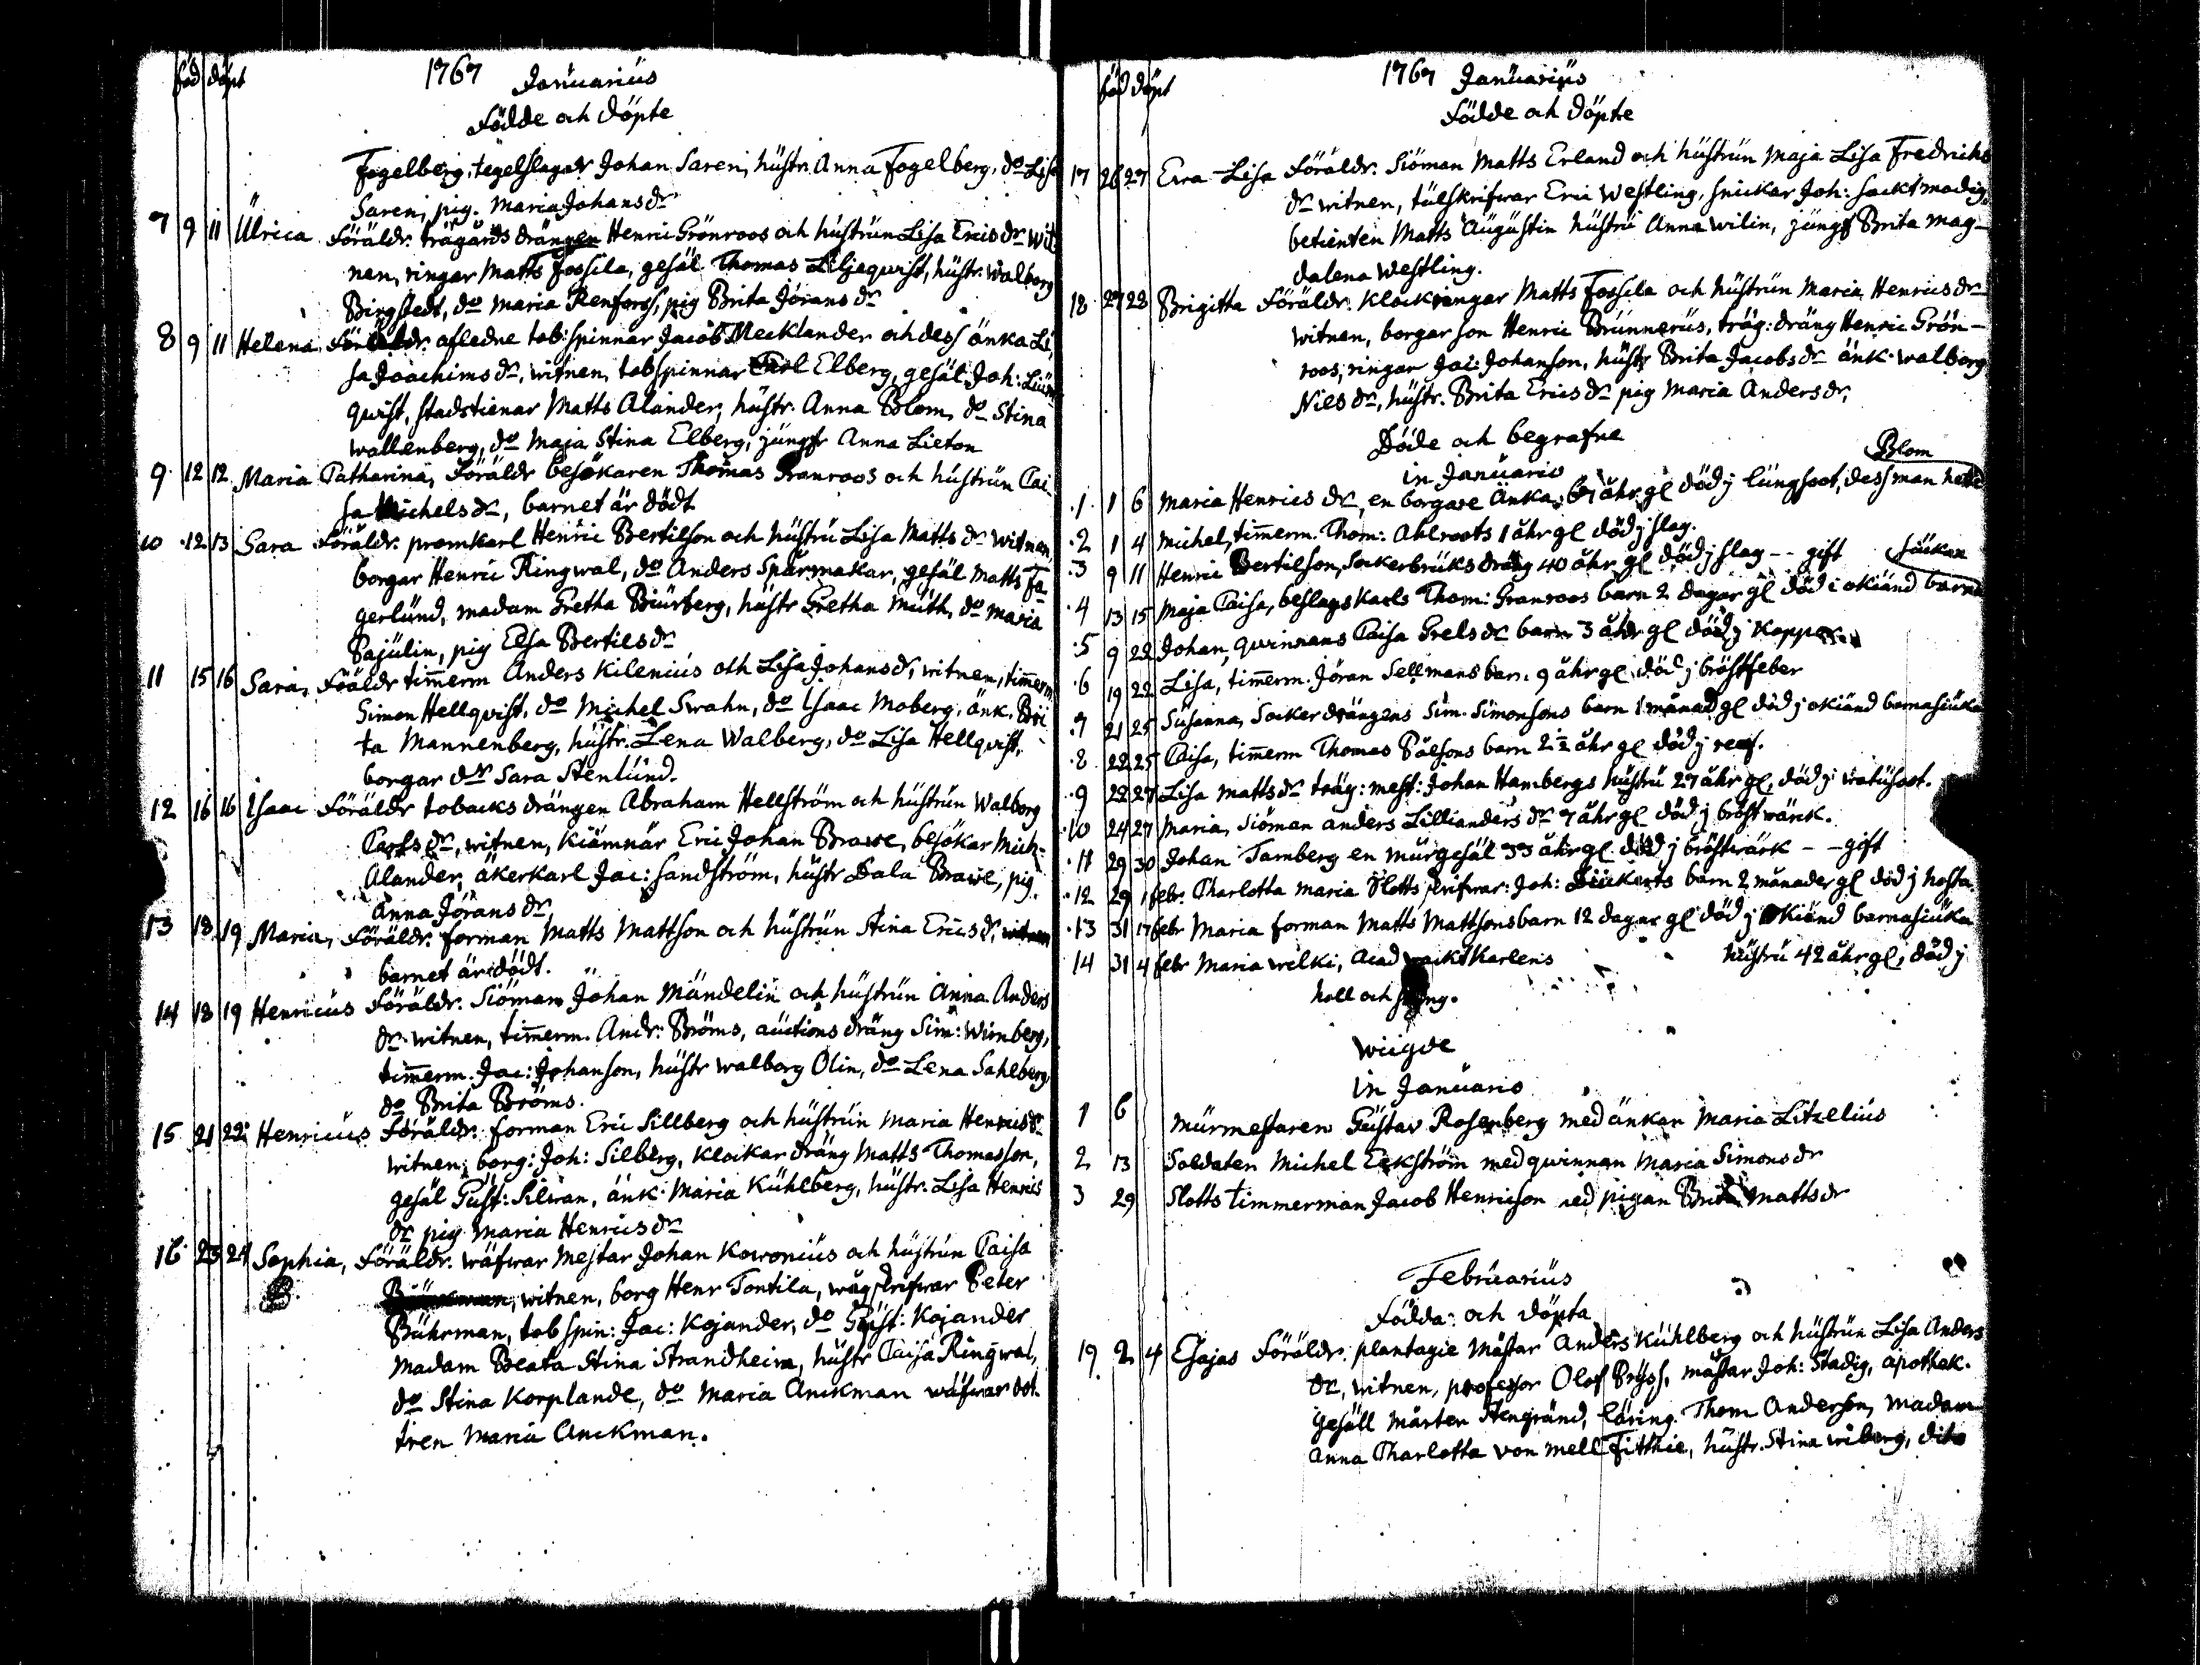 född döpt 1767 Januarius
Födde och döpte
Fogelberg, tegelslagar Johan Saren, hustr. Anna Fogelberg, do Lisa
Saren, pig. Maria Johans dr
7 9 11 Ulrica Föräldr. trägårds drängen Henric Grönroos och hustrun Lisa Erics dr wit
nen, ringar Matts Fossila, gesäl Thomas Liljeqvist, hustr. Walborg
Birgstedt, do Maria Renfors, pig Brita Jörans dr
8 9 11 Helena Föräldr. afledne tob: spinnar Jacob Mecklander och dess änka Li
sa Joachims dr, witnen, tobspinnar Carl Elberg, gesäl Joh: Lind
qvist, stadstienar Matts Alander, hustr. Anna Blom, do Stina
Wallenberg, do Maja Stina Elberg, jungfr Anna Lieton
9 12 12 Maria Catharina, Föräldr besökaren Thomas Granroos och hustrun Cai
sa Michels dr, barnet är dödt
10 12 13 Sara Föräldr. promkarl Henric Bertilson och hustru Lisa Matts dr witnen
borgar Henric Ringwal, do Anders Spårmakar, gesäl Matts Fa
gerlund, madam Gretha Biurberg, hustr Gretha Muth, do Maria
Pajulin, pig Elsa Bertils dr
11 15 16 Sara, Föäldr timmerm Anders Kilenius och Lisa Johans dr, witnen, timmerm
Simon Hellqvist, do Michel Swahn, do Isaac Moberg, änk. Bri
ta Mannenberg, hustr. Lena Walberg, do Lisa Hellqvist,
borgar dr Sara Stenlund.
12 16 16 Isaac Föräldr tobacks drängen Abraham Hellström och hustrun Walborg
Carls dr, witnen, Kiämnär Eric Johan Brawe, besökar Mich:
Alander, åkerkarl Jac: Sandström, hustr Dala Brawe, pig.
Anna Jörans dr
13 18 19 Maria, Föräldr. forman Matts Mattson och hustrun Stina Erics dr, witnen
barnet är dödt.
14 18 19 Henricus Föräldr. Siöman Johan Mandelin och hustrun Anna Anders
dr witnen, timmerm. Andr: Broms, auctions dräng Sim: Wirnberg,
timmerm. Jac: Johanson, hustr Walborg Olin, do Lena Sahlberg,
do Brita Broms.
15 21 22 Henricus Föräldr. forman Eric Sillberg och hustrun Maria Henrics dr
witnen, borg: Joh: Silberg, klockar dräng Matts Thomasson,
gesäl Gust: Silwan, änk. Maria Kuhlberg, hustr. Lisa Henrics
dr pig Maria Henrics dr
16 23 24 Sophia, Föräldr. wäfwar Mestar Johan Koworonius och hustrun Caisa
witnen, borg Henr Tontila, wågskrifwar Peter
Buhrman, tobspin: Jac: Kojander, do Gust: Kojander
Madam Beata Stina Strandheim, hustr Caisa Ringwal,
do Stina Korplande, do Maria Anckman wäfwar dot
tren Maria Anckman.
född döpt 1767 Januarius
Födde och döpte
17 26 27 Eva Lisa Föräldr. Siöman Matts Erland och hustrun Maja Lisa Fredrichs
dr witnen, tulskrifwar Eric Westling, snickar Joh: Sacktmodig,
betienten Matts Augustin hustru Anna Wilin, jungf Brita Mag-
dalena Westling.
18 27 28 Brigitta Föräldr. klockringar Matts Fossila och hustrun Maria Henrics dr
witnen, borgar son Henric Brunnerus, träg: dräng Henric Grön-
roos, ringar Jac: Johanson, hustr Brita Jacobs dr änk. Walborg
Nils dr, hustr. Brita Erics dr pig Maria Anders dr,
Döde och begrafne
in Januario
Blom
1 1 6 Maria Henrics dr, en borgare änka, 67 åhr gl död j lungsoot, dess man hette
2 1 4 Michel, timmerm. Thom: Ahlroots 1 åhr gl död j slag.
3 9 11 Henric Bertilson, Sockerbruks dräng 40 åhr gl död j slag -- gift
siukan
4 13 15 Maja Caisa, beslags Karls Thom: Granroos barn 2 dagar gl död i okiänd barna
5 9 22 Johan, qwinnans Caisa Grels dr barn 3 åhr gl död j koppor
6 19 22 Lisa, timmerm. Jöran Sellmans barn 9 åhr gl död j bröstfeber
7 21 25 Susanna, Socker drängens Sim. Simonsons barn 1 månad gl död j okiänd barnasiuka
8 22 25 Caisa, timmerm Thomas Pålsons barn 2 1/2 åhr gl död j
9 22 27 Lisa Matts dr träg: mest: Johan Hambergs hustru 27 åhr gl, död j watusoot.
10 24 27 Maria, Siöman Anders Lillianders dr 7 åhr gl död j bröstwärck.
11 29 30 Johan Tamberg en murgesäl 33 åhr gl död j bröstwärk -- gift
12 29 1 febr. Charlotta Maria Slotts skrifwar: Joh: Dückerts barn 2 månader gl död j hosta.
13 31 17 febr Maria forman Matts Mattsons barn 12 dagar gl död j okiänd barnasiuka
14 31 4 febr Maria Wilki, Acad wacktkarlens hustru 42 åhr gl, död j
håll och styng.
Wiigde
in Januario
1 6 Murmestaren Gustav Rosenberg med änkan Maria Litzelius
2 13 Soldaten Michel Eckström med qwinnan Maria Simons dr
3 29 Slotts timmerman Jacob Henricson med pigan Brita Matts dr
Februarius
Födda och döpta
19 2 4 Esajas Föräldr. plantagie Mästar Anders Kuhlberg och hustrun Lisa Anders
dr, witnen, professor Olof Pryss, mästar Joh: Stadig, apothek.
gesäll Mårten Stengrund, läring. Thom Anderson, Madam
Anna Charlotta von Mell Fitthie, hustr. Stina Wiberg, dito